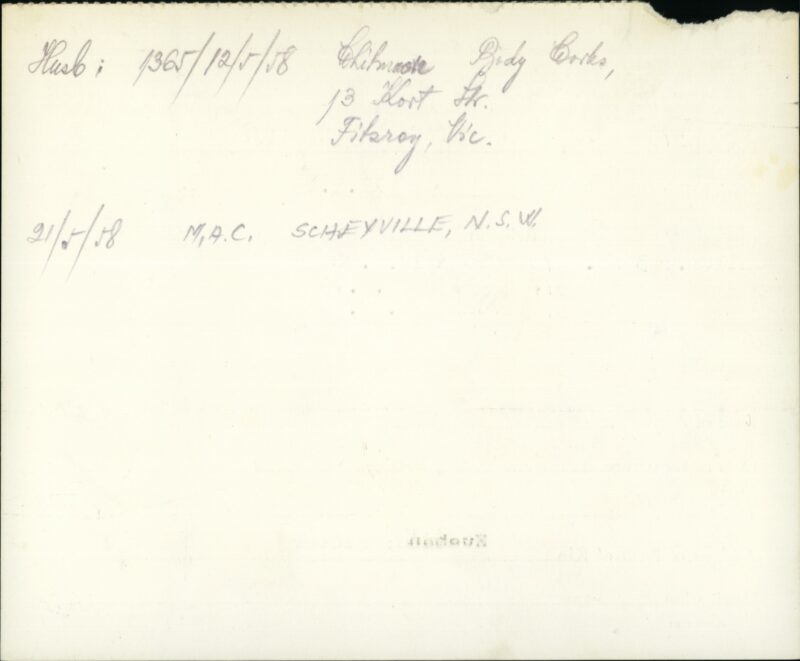 Husb: 1365/12/5/58 Chitmode Body Corks,
13 Kort Str.
Fitzroy, Vic.
21/5/58 M.A.C. SCHEYVILLE, N.S.W.